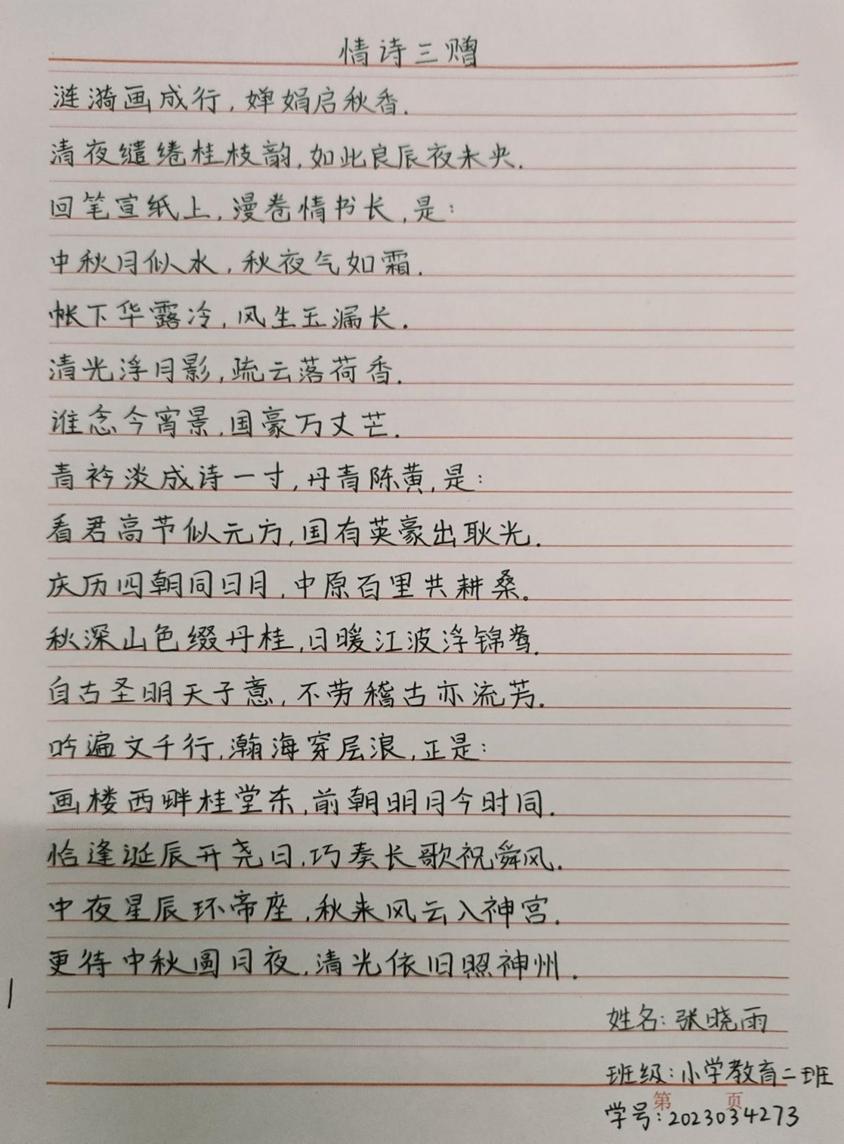 情诗三赠
涟漪画成行,婵娟启秋香.
清夜缱绻桂枝韵,如此良辰夜未央.
回笔宣纸上,漫卷情书长,是:
中秋月似水,秋夜气如霜.
帐下华露冷,风生玉漏长.
清光浮月影,疏云落荷香.
谁念今宵景,国豪万丈芒.
青衿淡成诗一寸,丹青陈黄,是:
看君高节似元方,国有英豪出耿光.
庆历四朝同日月,中原百里共耕桑.
秋深山色缀丹桂,日暖江波浮锦鸯.
自古圣明天子意,不劳稽古亦流芳.
吟遍文千行,瀚海穿层浪,正是:
画楼西畔桂堂东,前朝明月今时同.
恰逢诞辰开尧日,巧奏长歌祝舜风.
中夜星辰环帝座,秋来风云入神宫.
更待中秋圆月夜,清光依旧照神州.
姓名:张晓雨
班级:小学教育二班
第 页
学号:2023034273